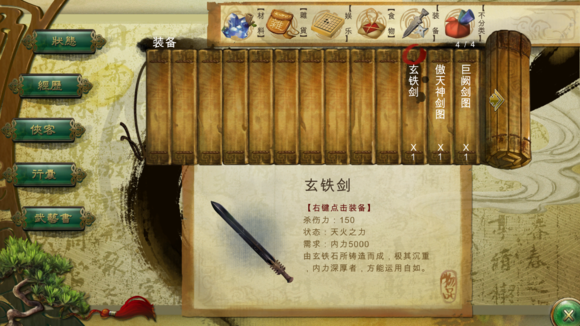 【材料】
【雜貨】
【娱乐】
【食物】
【装备】
【不分类】
4 / 4
装备
狀態
經歷
俠客
行囊
武藝書
玄铁剑
X
1
傲天神剑图
X
1
巨阙剑图
X
1
玄铁剑
【右键点击装备】
杀伤力：150
状态：天火之力
需求：内力5000
由玄铁石所铸造而成，极其沉重
，内力深厚者，方能运用自如。
物品